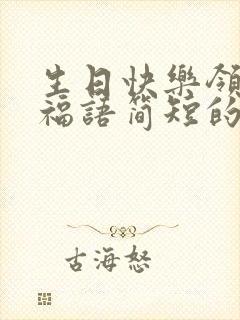 生日快樂領
福語简短的
古海怒